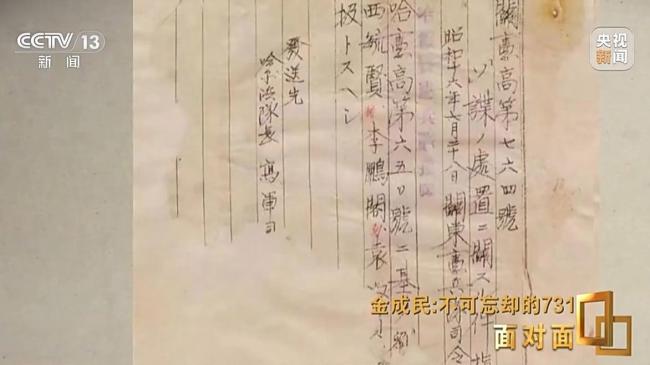 CCTV 13
新闻
央视
新闻
關憲高第七六四號
ソ諜ノ處置ニ關スル件指
昭和十六年 關東憲兵隊司令
哈憲高第六五〇號ニ基
西毓賢 李鵬閣 袁
扱トスヘシ
發送先
哈尔浜隊長 寫軍司
金成民:不可忘却的731
面对面